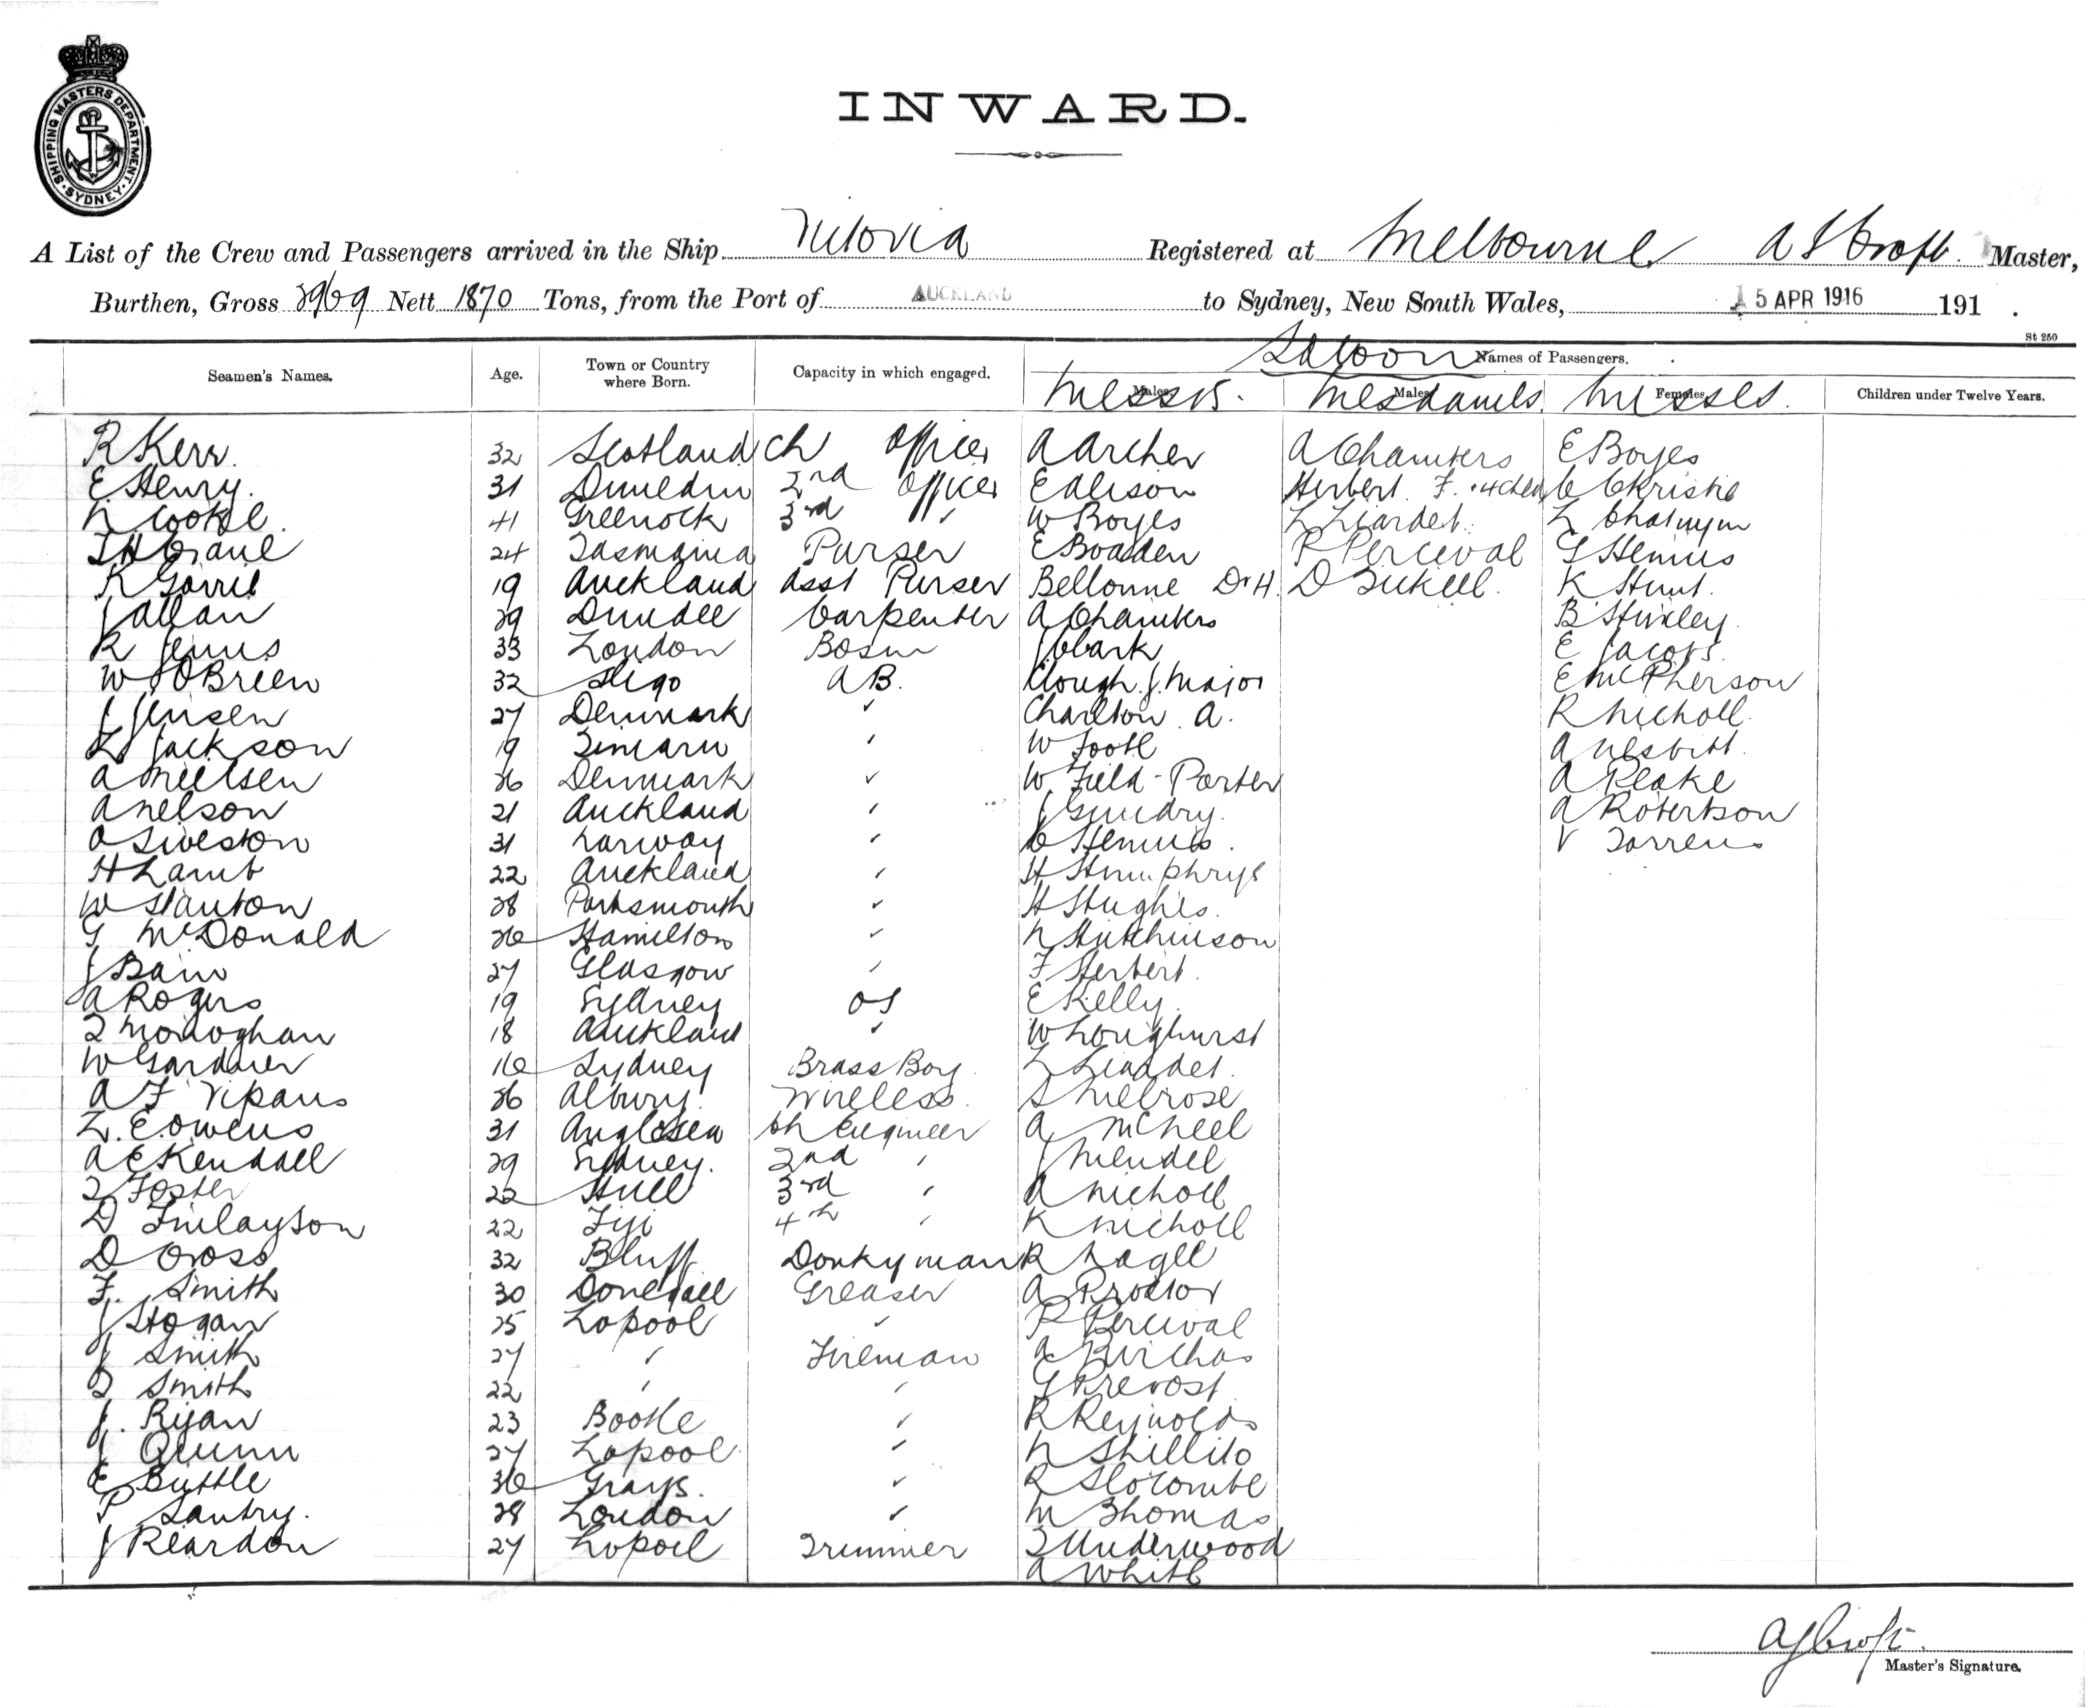 SHIPPING MASTERS DEPARTMENT SYDNEY
INWARD.
A List of the Crew and Passengers arrived in the Ship Victoria Registered at Melbourne A J Croft. Master,
Burthen, Gross 2969 Nett 1870 Tons, from the Port of AUCKLAND to Sydney, New South Wales, 15 APR 1916 191 .
St 250
Saloon
Seamen's Names. Age. Town or Country where Born. Capacity in which engaged. Names of Passengers.
Males. Males. Females. Children under Twelve Years.
Messrs. Mesdames. Misses.
R Kerr. 32 Scotland Ch Officer A Archer A Chambers E Boyes
E Henry. 31 Dunedin 2nd Officer E Alison Herbert F. C Christie
N Cooke. 41 Greenock 3rd " W Boyes L Liardet.
T H Crane 24 Tasmania Purser E Boadden P Perceval G Hemus
R Gorrie 19 Auckland Asst Purser Bellonne Dr H. D Tickell. K Hunt.
J Allan 29 Dundee Carpenter A Chambers B Huxley.
R Jenns 33 London Bosun J Clark E Jacobs.
W J O'Brien 32 Sligo AB. Clough. J. Major E McPherson
J Jensen 27 Denmark " Charlton A. R Nicholl.
L Jackson 19 Timaru " W Foote A Nesbitt.
A Neilsen 26 Denmark " W Field-Porter A Peake
A Nelson 21 Auckland " J Gundry. A Robertson
O Siveston 31 Norway " C Hemus. V Torrens
H Lamb 22 Auckland " H Humphrys
W Stanton 28 Portsmouth " H Hughes.
G McDonald 26 Hamilton " N Hutchinson
J Bain 27 Glasgow " F Herbert.
A Rogers 19 Sydney OS E Kelly.
T Monoghan 18 Auckland " W Longhurst
W Gardner 16 Sydney Brass Boy. L Liardet.
A F Vipans 26 Albury. Wireless. S Melrose
L. E. Owens 31 Anglesea Ch Engineer A McNeel
A E Kendall 29 Sydney. 2nd " J Mendel
T Foster 22 Hull 3rd " A Nicholl
D Finlayson 22 Fiji 4th " K Nicholl
D Cross 32 Bluff Donkyman R Nagle
F. Smith 30 Donegall Greaser A Proctor
J Hogan 25 Lopool " P Percival
J Smith 27 " Fireman A Purchas
T Smith 22 " " G Prevost
J. Ryan 23 Bootle " R Reynolds
J Quinn 27 Lopool " N Shillito
E Buttle 36 Grays. " R Slocombe
P Santry. 28 London " M Thomas
J Reardon 27 Lopool Trimmer T Underwood
A White
A J Croft.
Master's Signature.